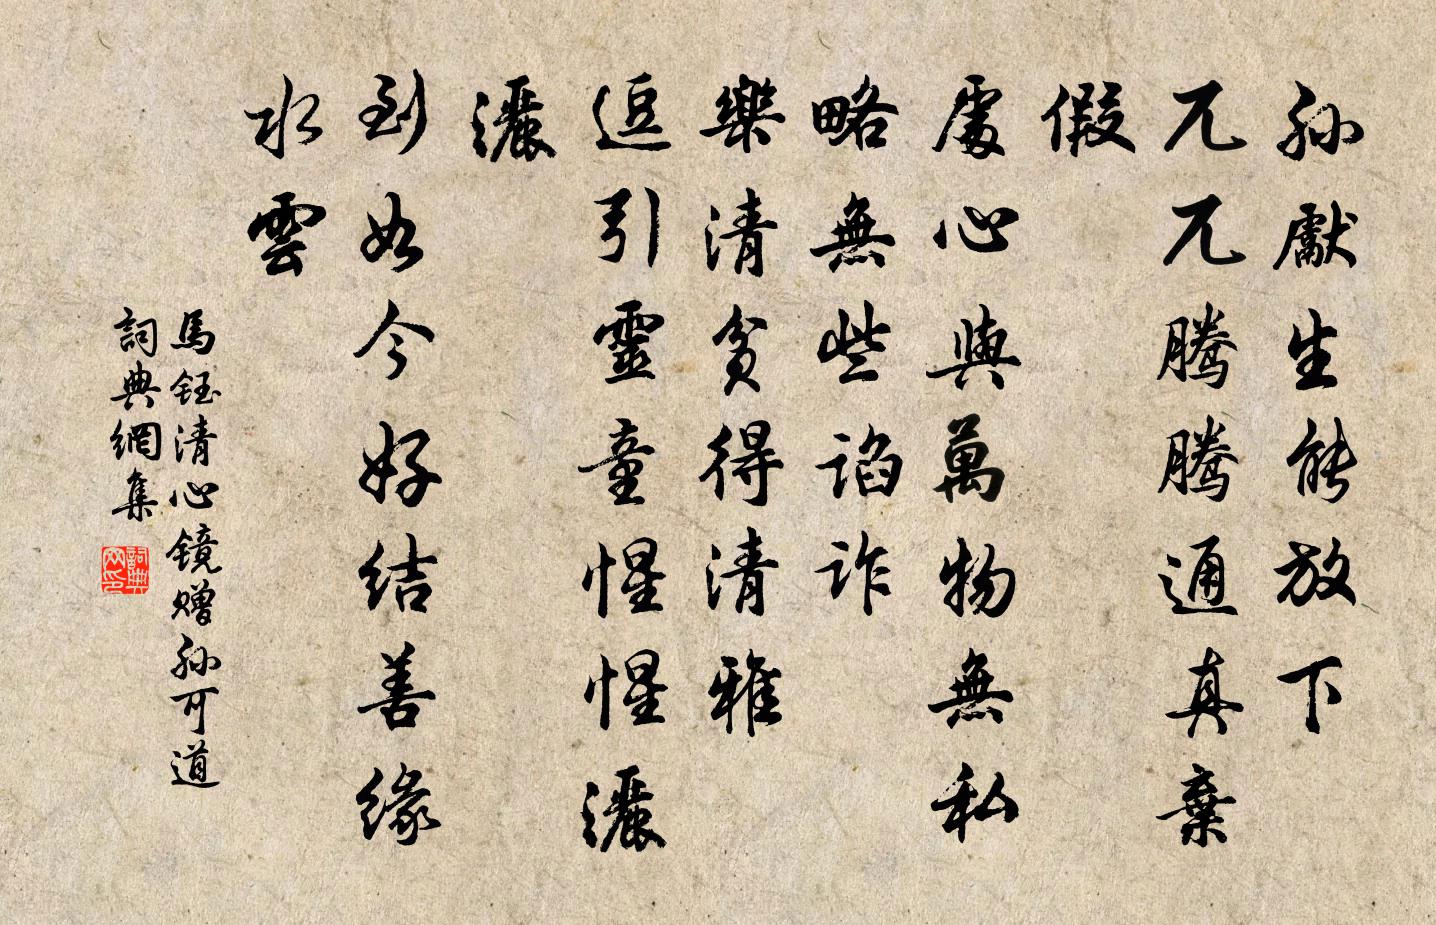 孙獻生能放下
兀兀騰騰通真棄
假
處心與萬物無私
略無些諂詐
樂清貧得清雅
逗引靈童惺惺灑
灑
到如今好结善緣
水雲
馬鈺清心镜赠孙可道
詞典網集
詞典网印